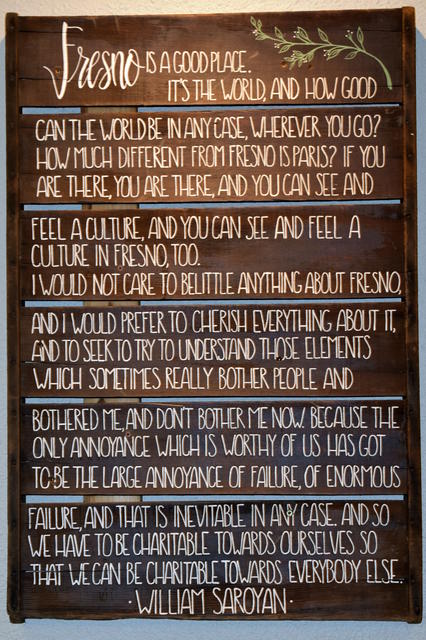 Fresno IS A GOOD PLACE.
IT'S THE WORLD, AND HOW GOOD
CAN THE WORLD BE IN ANY CASE, WHEREVER YOU GO?
HOW MUCH DIFFERENT FROM FRESNO IS PARIS? IF YOU
ARE THERE, YOU ARE THERE, AND YOU CAN SEE AND
FEEL A CULTURE, AND YOU CAN SEE AND FEEL A
CULTURE IN FRESNO, TOO.
I WOULD NOT CARE TO BELITTLE ANYTHING ABOUT FRESNO,
AND I WOULD PREFER TO CHERISH EVERYTHING ABOUT IT,
AND TO SEEK TO TRY TO UNDERSTAND THOSE ELEMENTS
WHICH SOMETIMES REALLY BOTHER PEOPLE AND
BOTHERED ME, AND DON'T BOTHER ME NOW. BECAUSE THE
ONLY ANNOYANCE WHICH IS WORTHY OF US HAS GOT
TO BE THE LARGE ANNOYANCE OF FAILURE, OF ENORMOUS
FAILURE, AND THAT IS INEVITABLE IN ANY CASE. AND SO
WE HAVE TO BE CHARITABLE TOWARDS OURSELVES SO
THAT WE CAN BE CHARITABLE TOWARDS EVERYBODY ELSE..
·WILLIAM SAROYAN·